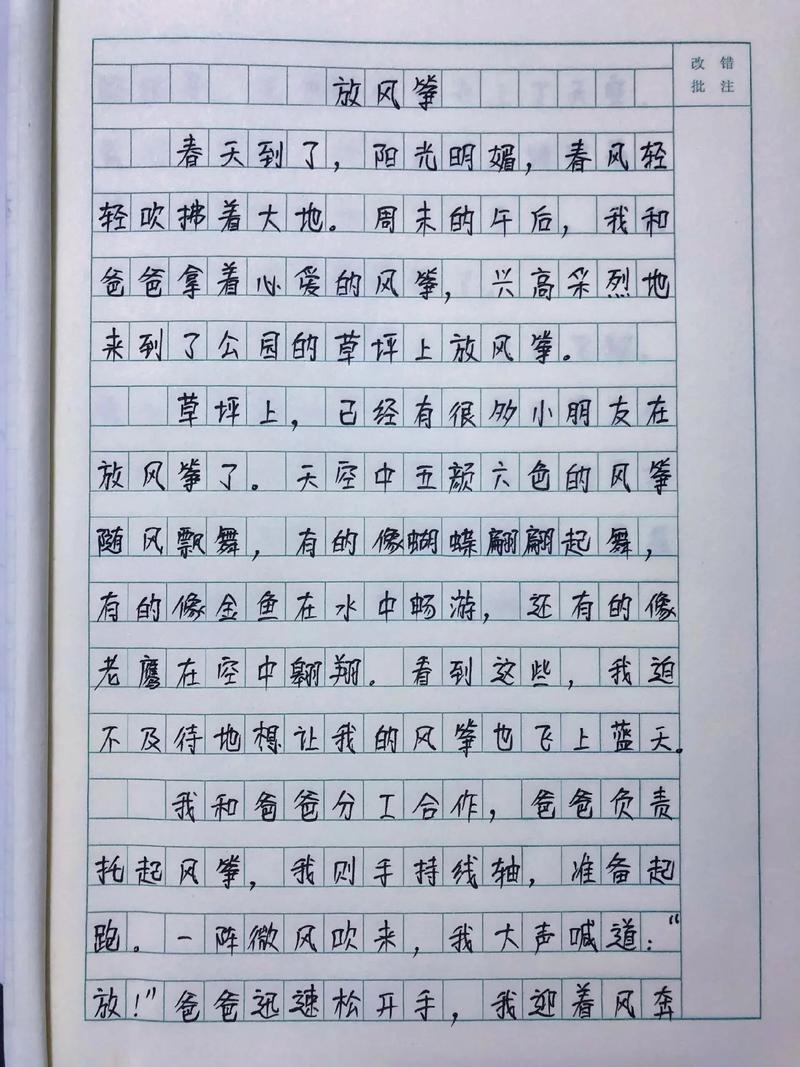 改错
批注
放风筝
春天到了，阳光明媚，春风轻
轻吹拂着大地。周末的午后，我和
爸爸拿着心爱的风筝，兴高采烈地
来到了公园的草坪上放风筝。
草坪上，已经有很多小朋友在
放风筝了。天空中五颜六色的风筝
随风飘舞，有的像蝴蝶翩翩起舞，
有的像金鱼在水中畅游，还有的像
老鹰在空中翱翔。看到这些，我迫
不及待地想让我的风筝也飞上蓝天。
我和爸爸分工合作，爸爸负责
托起风筝，我则手持线轴，准备起
跑。一阵微风吹来，我大声喊道：“
放！”爸爸迅速松开手，我迎着风奔